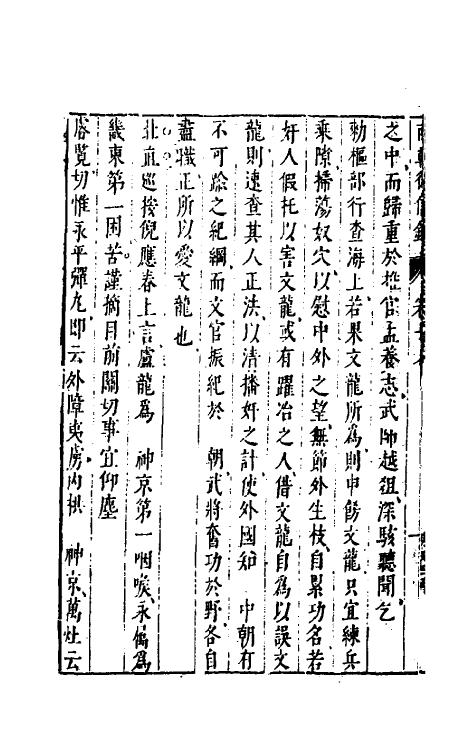 兩朝從信錄
之中而歸重於推官孟養志武帥越俎深駭聽聞乞
勑樞部行查海上若果文龍所為則申飭文龍只宜練兵
乘隙掃蕩奴穴以慰中外之望無節外生枝自累功名若
奸人假托以害文龍或有躍冶之人借文龍自為以誤文
龍則速查其人正法以清播奸之計使外國知 中朝有
不可踰之紀綱而文官振紀於 朝武將奮功於野各自
盡職正所以愛文龍也
北直巡按倪應春上言盧龍為 神京第一咽喉永傷為
畿東第一困苦謹摘目前關切事宜仰塵
睿覽切惟永平彈丸即云外障夷虜內拱 神京萬灶云